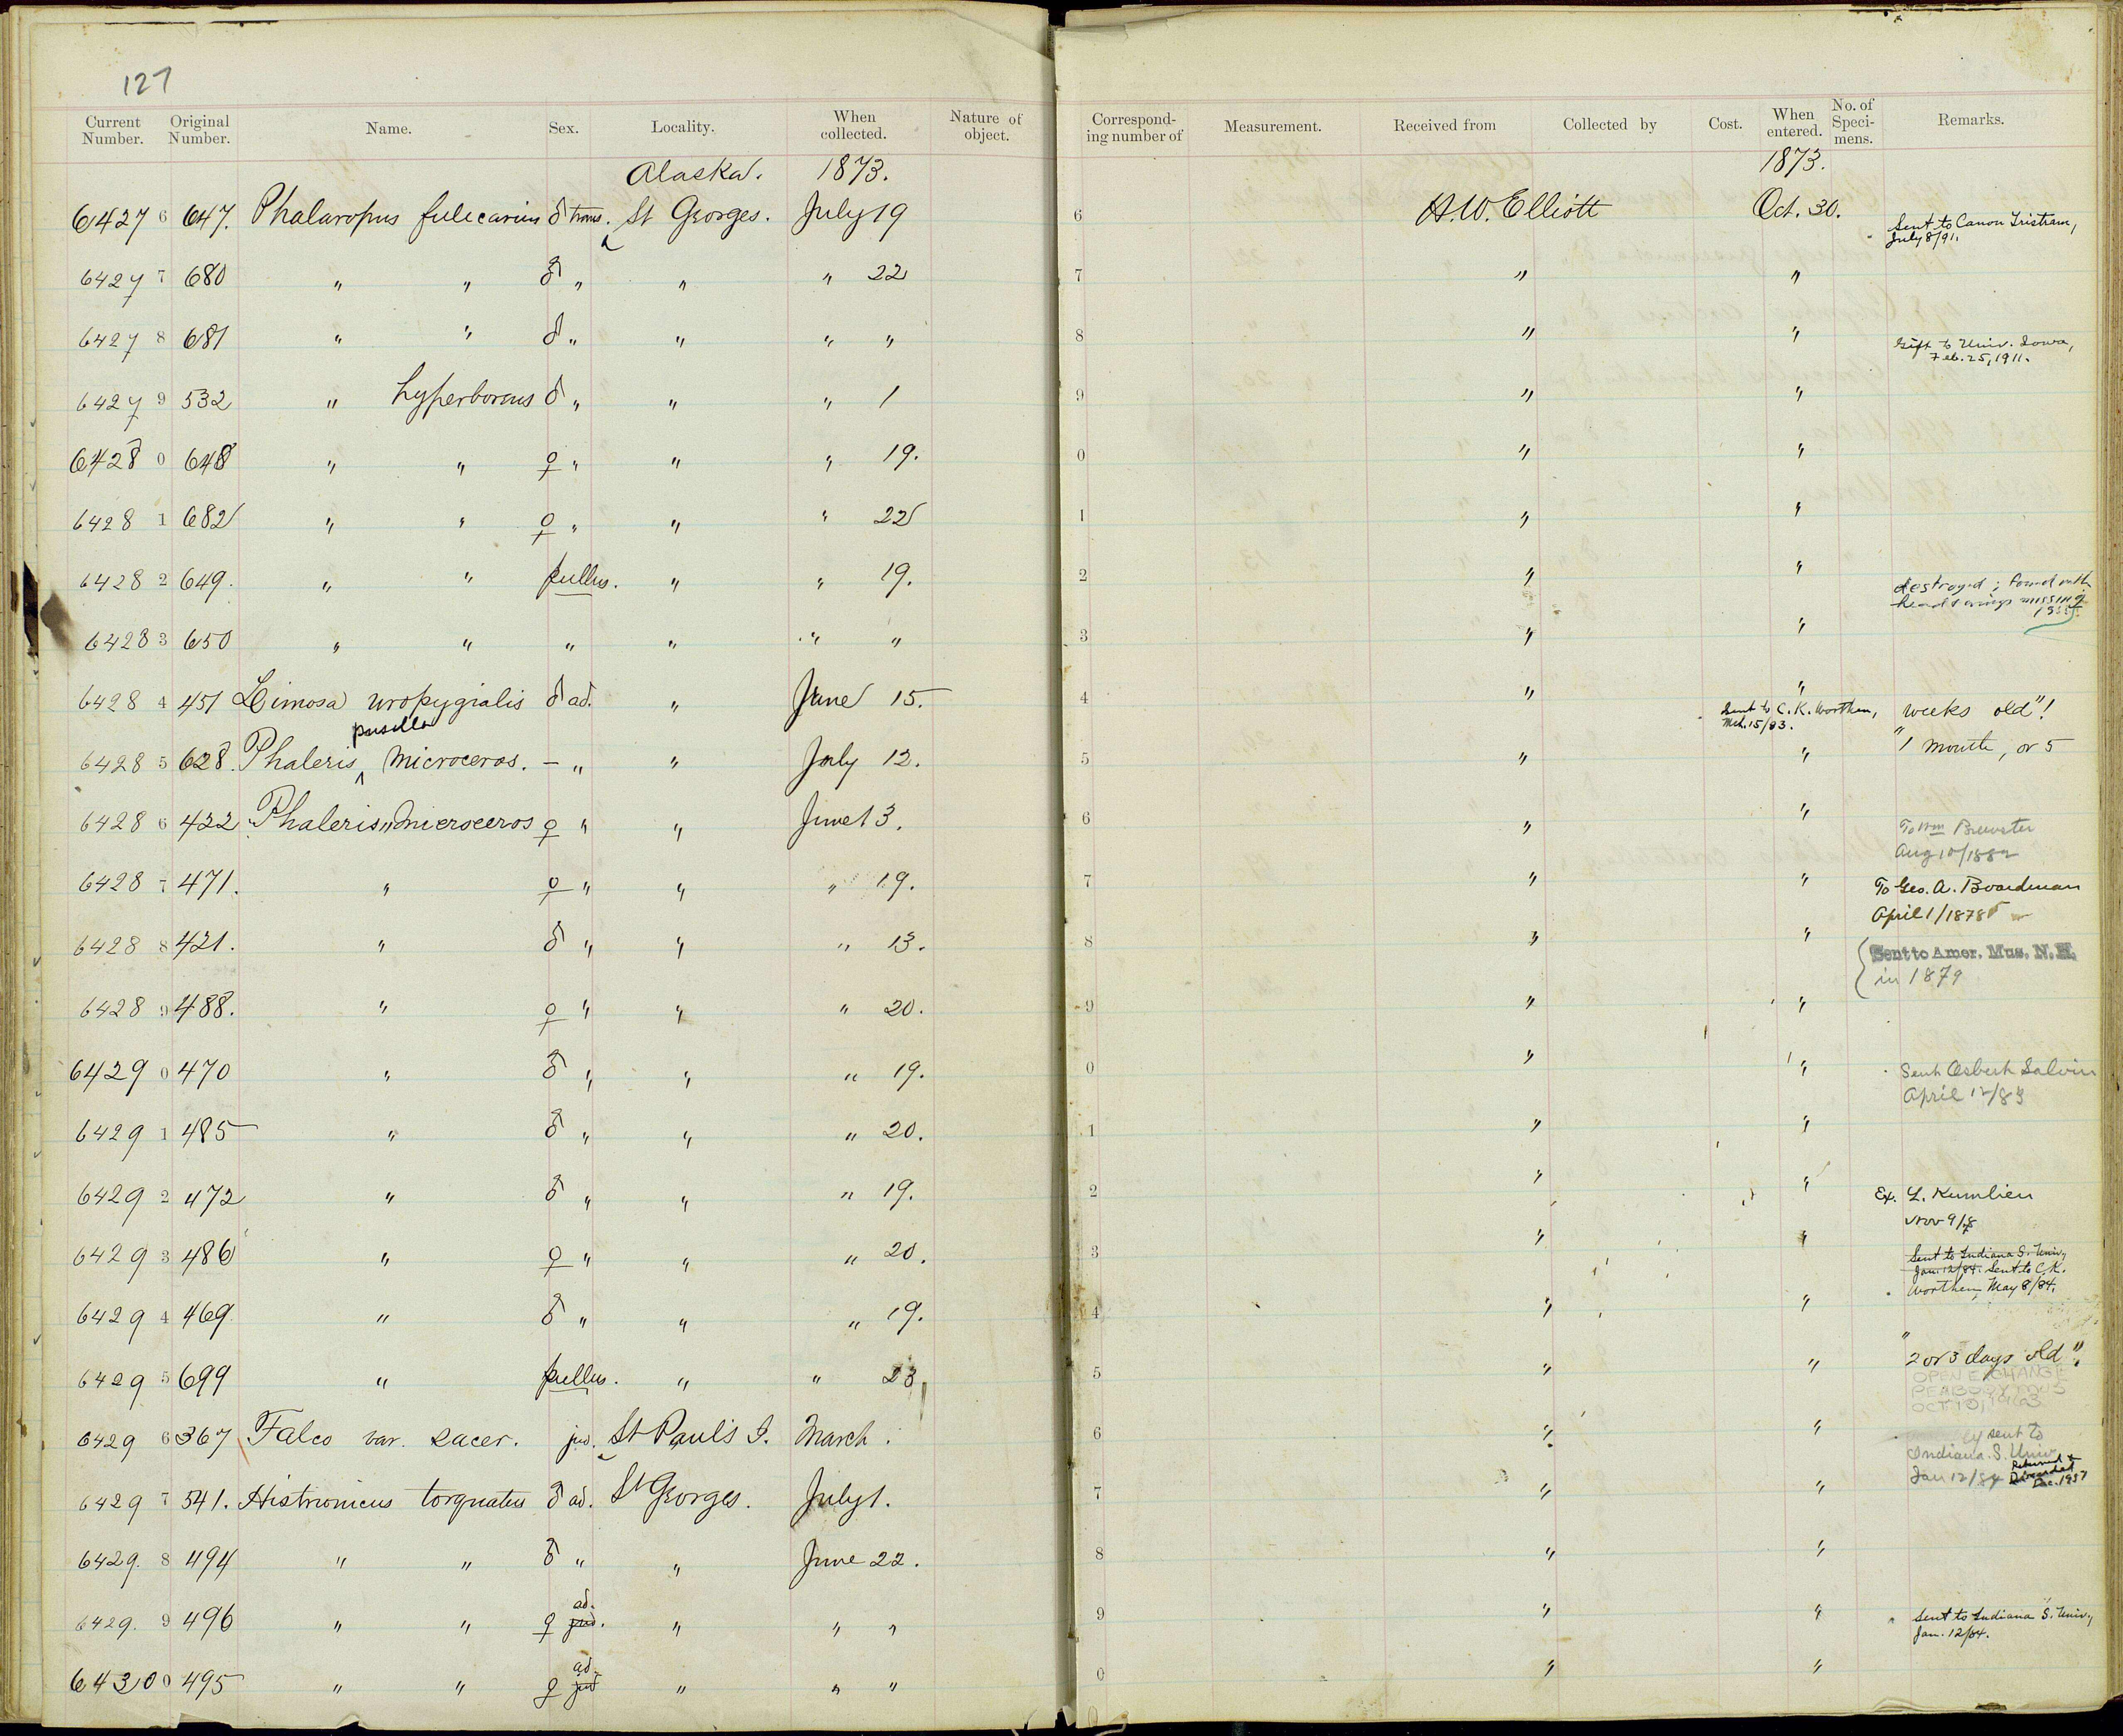 127
Current Number. Original Number. Name. Sex. Locality. When collected. Nature of object.
Alaska. 1873.
6427 6 647. Phalaropus fulicarius ♂ trans. St Georges. July 19
6427 7 680 " " ♂ " " " 22
6427 8 681 " " ♂ " " " "
6427 9 532 " hyperboreus ♂ " " " 1
6428 0 648 " " ♀ " " " 19.
6428 1 682 " " ♀ " " " 22
6428 2 649. " " pullus. " " 19.
6428 3 650 " " " " " "
6428 4 451 Limosa uropygialis ♂ ad. " June 15.
pusilla
6428 5 628. Phaleris ^ microceros. – " " July 12.
6428 6 422 Phaleris " microceros ♀ " " June 13.
6428 7 471. " ♀ " " " 19.
6428 8 421. " ♂ " " " 13.
6428 9 488. " ♀ " " " 20.
6429 0 470 " ♂ " " " 19.
6429 1 485 " ♂ " " " 20.
6429 2 472 " ♂ " " " 19.
6429 3 486 " ♀ " " " 20.
6429 4 469 " ♂ " " " 19.
6429 5 699 " pullus. " " 23
6429 6 367 Falco var. sacer. juv. St Pauls I. March.
6429 7 541. Histrionicus torquatus ♂ ad. St Georges. July 1.
6429. 8 494 " " ♂ " " June 22.
ad.
6429. 9 496 " " ♀ juv. " " "
ad.
64300 0 495 " " ♀ juv " " "
Correspond-ing number of Measurement. Received from Collected by Cost. When entered. No. of Speci-mens. Remarks.
1873.
6 H. W. Elliott Oct. 30.
Sent to Canon Tristram,
July 8/91.
7 " "
8 " "
Gift to Univ. Iowa,
Feb. 25, 1911.
9 " "
0 " "
1 " "
2 " "
destroyed; found with
head & wings missing
3 " "
4 " "
Sent to C. K. Worthen,
Mch. 15/83.
weeks old"!
5 " " "1 month, or 5
6 " "
To Wm Brewster
Aug 10/1882
7 " "
To Geo. A. Boardman
April 1/1878
8 " "
Sent to Amer. Mus. N. H.
in 1879
9 " "
0 " "
Sent Osbert Salvin
April 12/83
1 " "
2 " "
Ex. L. Kumlien
Nov 9/8
3 " "
Sent to Indiana S. Univ,
Jan. 12/84. Sent to C. K.
Worthen, May 8/84.
4 " "
"
5 " " 2 or 3 days old".
OPEN EXCHANGE
PEABODY MUS
OCT 10, 1963
6 " "
sent to
Indiana. S. Univ
Jan 12/84 Returned &
Discarded
Dec. 1937
7 " "
8 " "
9 " "
Sent to Indiana S. Univ,
Jan. 12/84.
0 " "